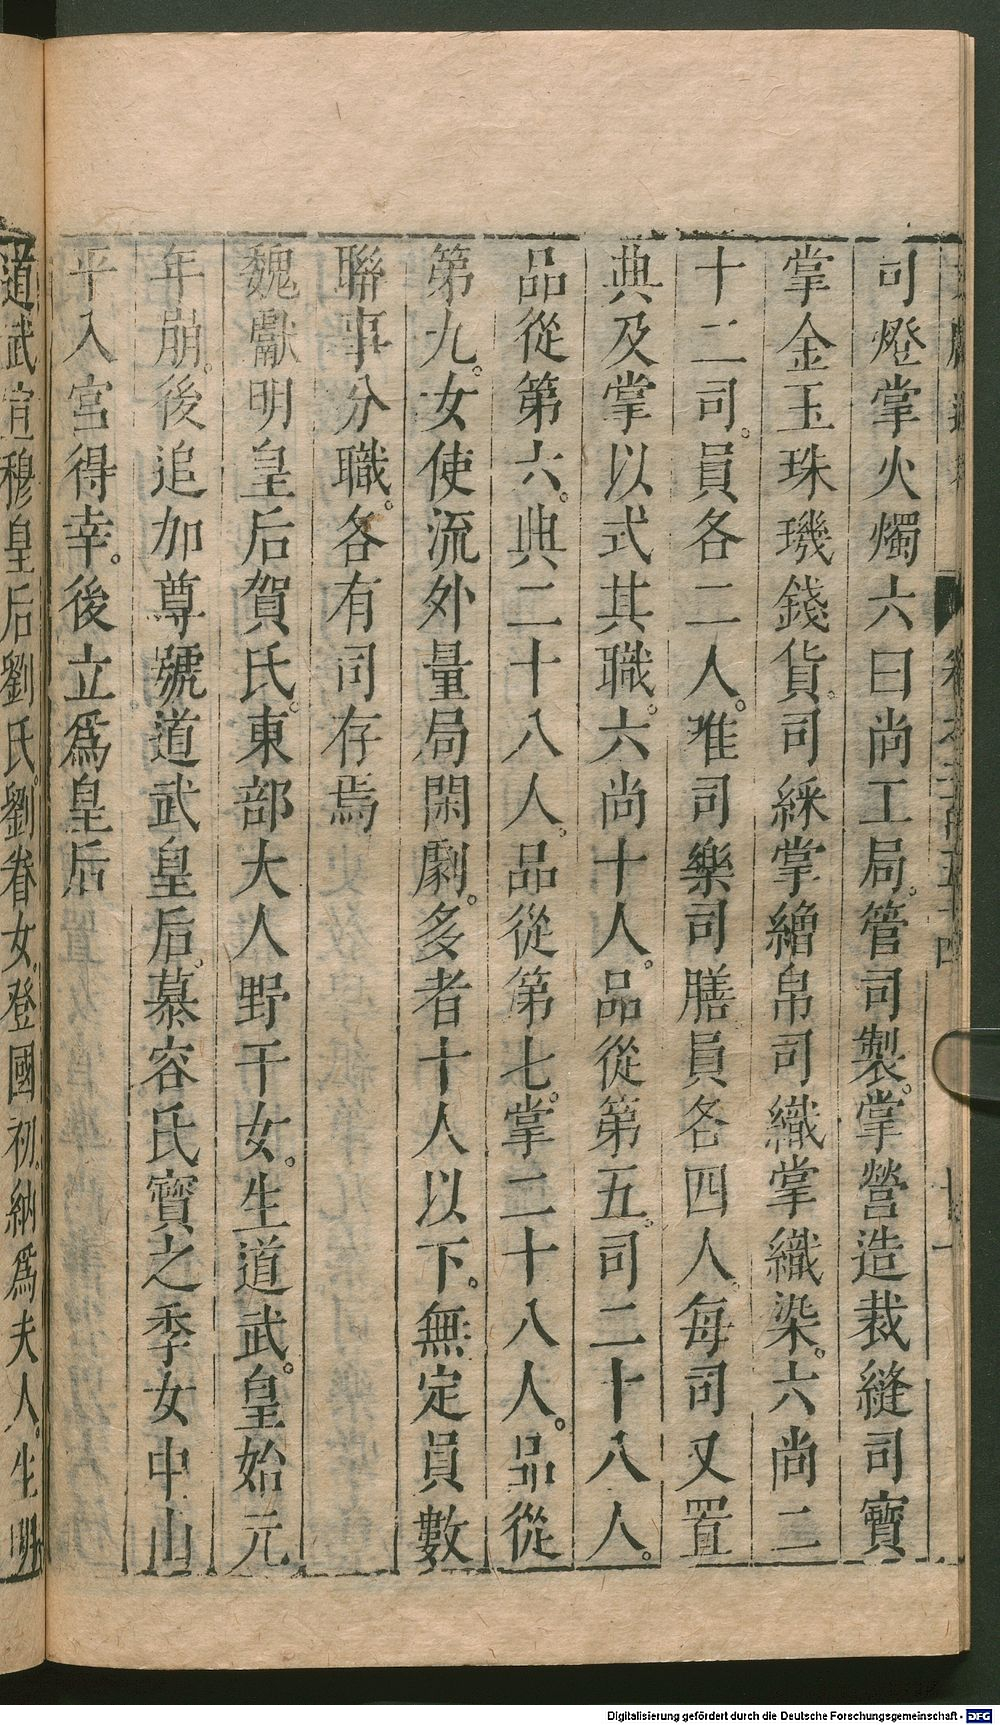 司燈掌火燭六曰尚工局。管司製。掌營造裁縫司寶
掌金玉珠璣錢貨。司綵掌繒帛司織掌織染。六尚二
十二司。員各二人。唯司樂司膳員各四人。每司又置
典及掌以式其職。六尚十人。品從第五。司二十八人。
品從第六。典二十八人。品從第七。掌二十八人。品從
第九。女使流外量局閑劇。多者十人以下。無定員數
聯事分職。各有司存焉
魏獻明皇后賀氏。東部大人野干女。生道武。皇始元
年崩。後追加尊號道武皇后。慕容氏寶之季女中山
平入宮得幸。後立爲皇后
道武宣穆皇后劉氏。劉眷女。登國初。納爲夫人。生
Digitalisierung gefördert durch die Deutsche Forschungsgemeinschaft - DFG